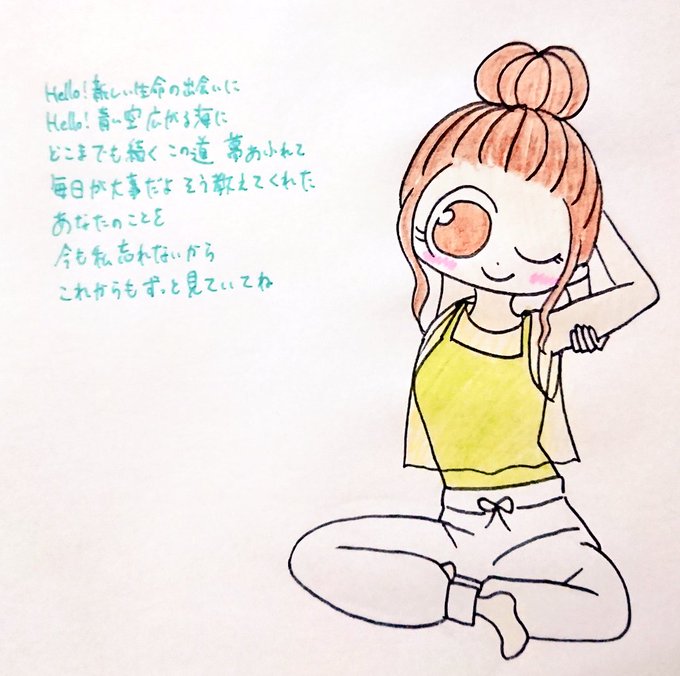 Hello!新しい生命の出会いに
Hello!青い空広がる海に
どこまでも続く この道 夢あふれて
毎日が大事だよ そう教えてくれた
あなたのことを
今も私忘れないから
これからもずっと見ていてね